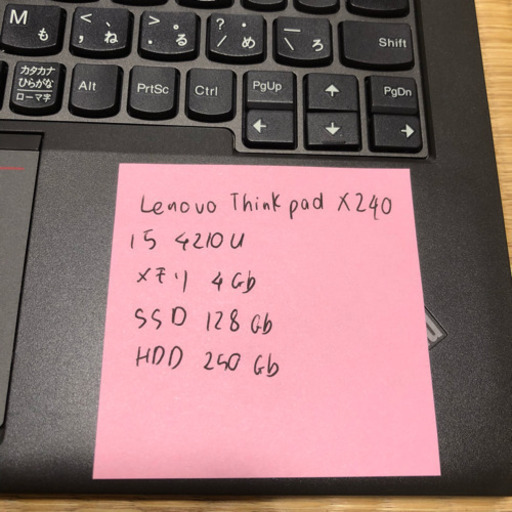 M も
< 、 ね
> 。 る
? ・ / め
_ \ ろ
Shift
カタカナ
ひらがな
ローマ字
Alt
PrtSc
Ctrl
PgUp
↑
PgDn
←
↓
→
Lenovo Thinkpad X240
i5 4210U
メモリ 4Gb
SSD 128Gb
HDD 250Gb